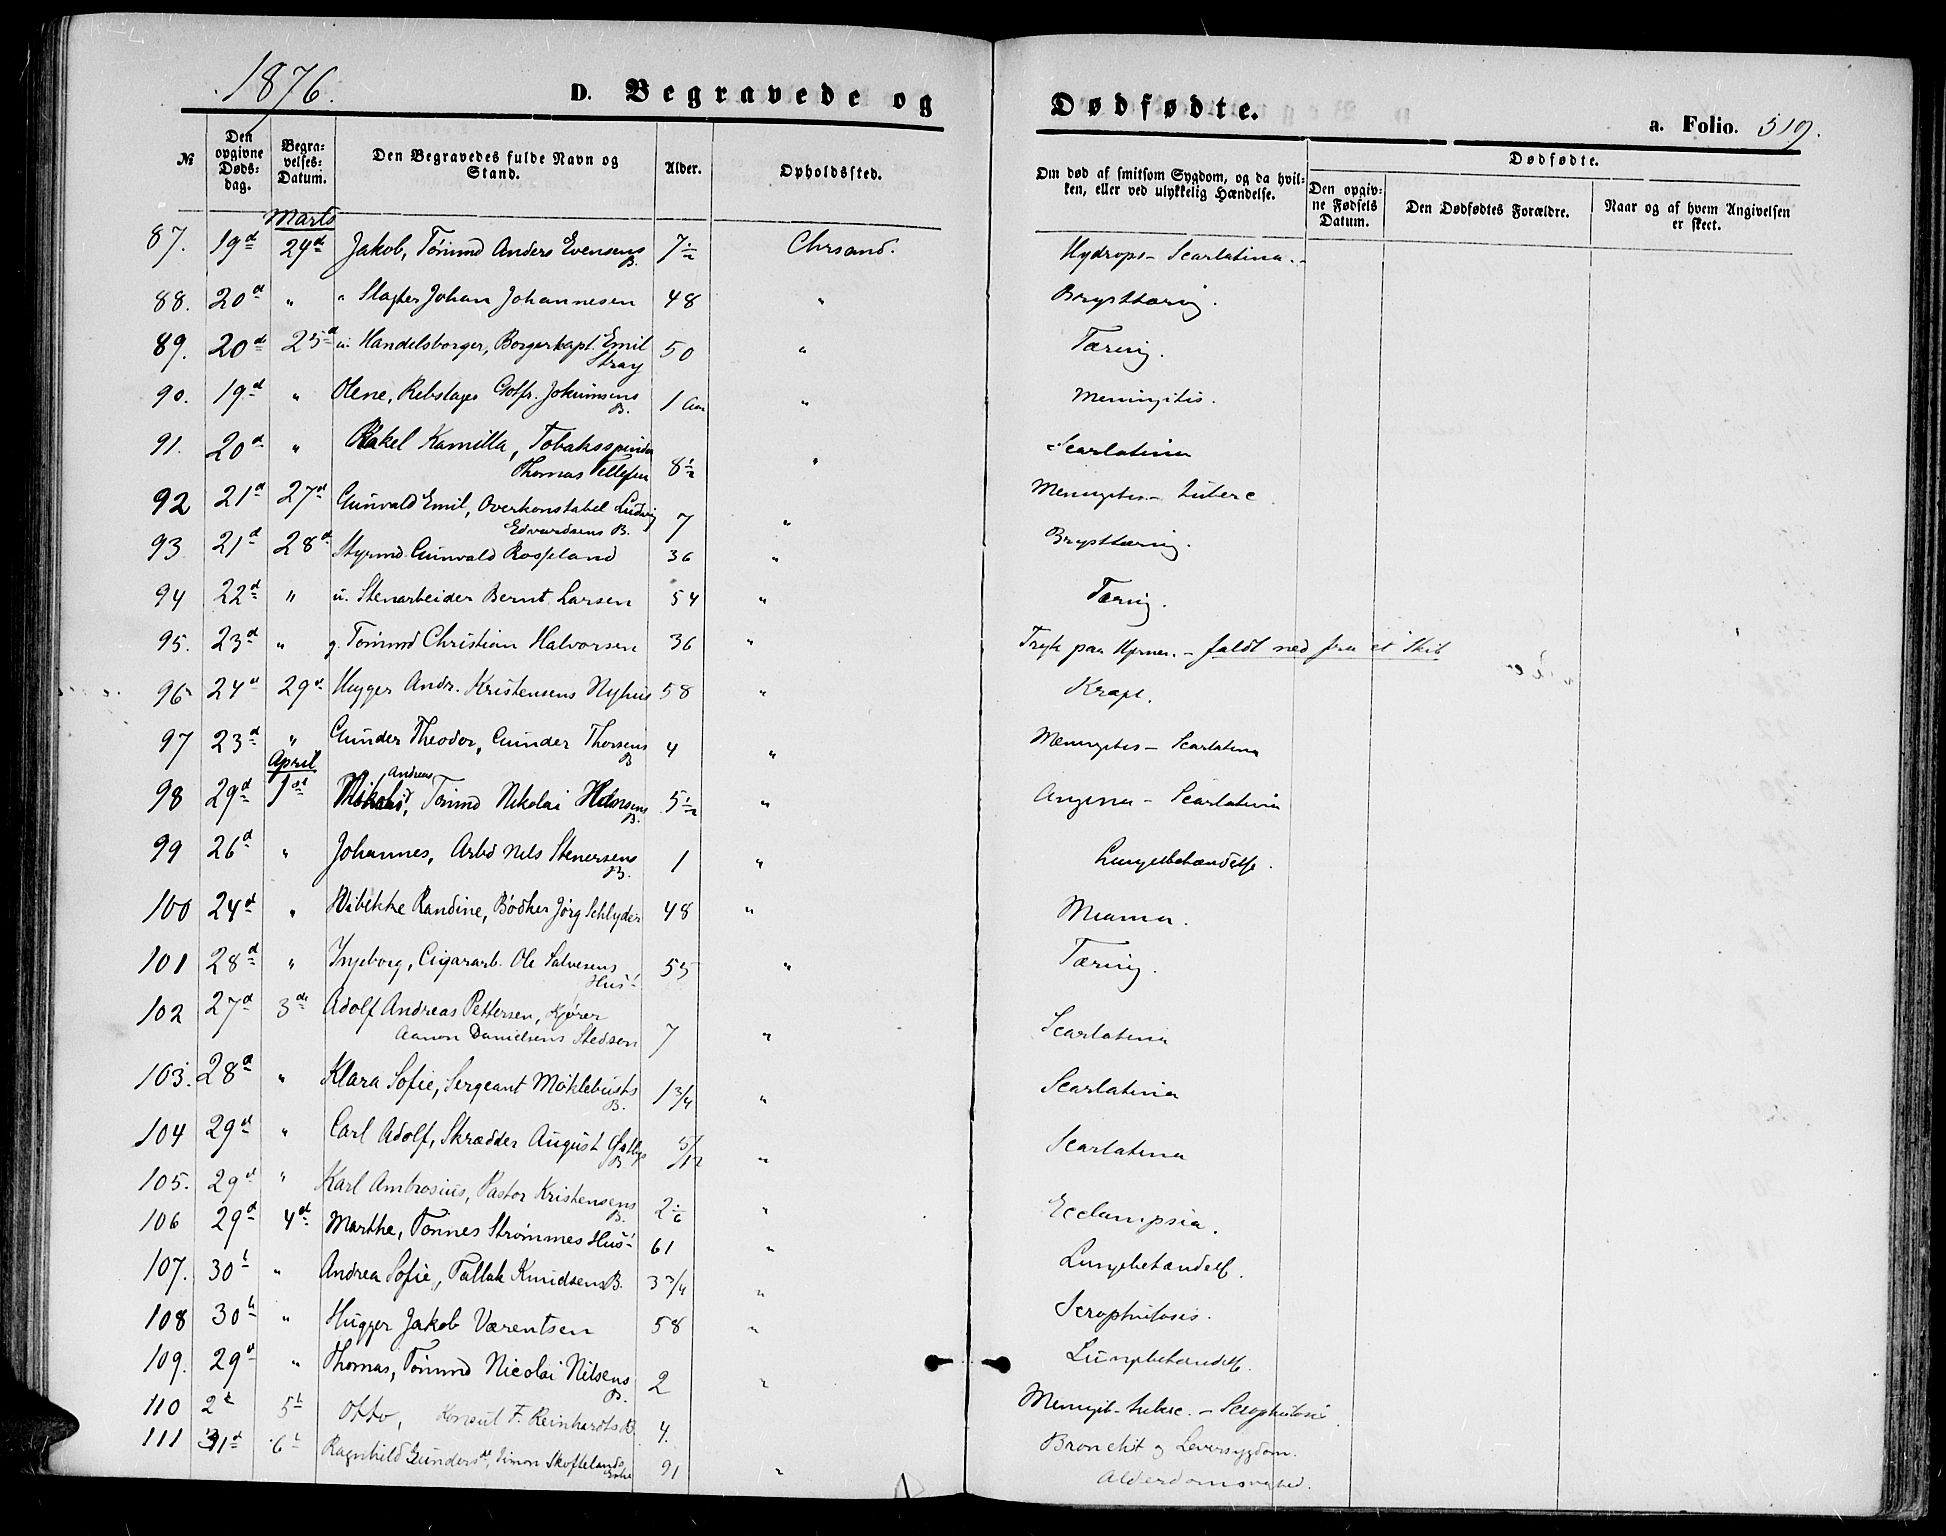 1876.
D. Begravede og Dødfødte.
a. Folio. 519.
№
Den opgivne Døds-dag.
Begra-velses-Datum.
Den Begravedes fulde Navn og Stand.
Alder.
Opholdssted.
Om død af smitsom Sygdom, og da hvil-ken, eller ved ulykkelig Hændelse.
Dødfødte.
Den opgiv-ne Fødsels Datum.
Den Dødfødtes Forældre.
Naar og af hvem Angivelsen er skeet.
Marts
87. 19d 24d Jakob, Tømmd Anders Evensens B. 7½ Chrsand. Hydrops - Scarlatina.
88. 20d " " Slagter Johan Johannesen 48 " Brysttæring.
89. 20d 25d u. Handelsborger, Borgerkapt. Emil Stray 50 " Tæring.
90. 19d " Olene, Rebslager Gotfr. Jokumsens B. 1 Aar " Meningitis.
91. 20d " Rakel Kamilla, Tobaksspinder Thomas Tellefsen 8½ " Scarlatina
92 21d 27d Gunvald Emil, Overkonstabel Ludvig Edvardsens B. 7 " Meningitis - tuberc
93 21d 28d Styrmd. Gunvald Rosseland 36 " Brysttæring.
94 22d " u. Stenarbeider Bernt Larsen 54 " Tæring.
95. 23d " g. Tømmd Christian Halvorsen 36 " Tryk paa Hjernen. - faldt ned fra et Skib
96 24d 29d Hugger Andr. Kristensens Nyhus 58 " Kræft.
97 23d " Gunder Theodor, Gunder Thorsens B 4 " Meningitis - Scarlatina
April
98 29d 1st Andreas, Tømmd Nikolai B. 5½ " Angina - Scarlatina
99 26d " Johannes, Arbd Nils Stenersens B. 1 " Lungebetændelse.
100 24d " Wibekke Randine, Bødker Jørg Schlyder 48 "
101 28d " Ingeborg, Cigararb. Ole Salvesens Hus! 55 " Tæring.
102 27d 3de Adolf Andreas Pettersen, Kjører Aanon Danielsens Stedsøn 7 " Scarlatina
103. 28d " Klara Sofie, Sergeant Møklebusts B. 1 3/4 " Scarlatina
104 29d " Carl Adolf, Skrædder August B 5/12 " Scarlatina
105. 29d " Karl Ambrosius, Pastor Kristensens B. 2 1/6 " Ecclampsia.
106 29d 4d Marthe, Tønnes Strømmes Hus! 61 " Lungebetændelse.
107. 30t " Andrea Sofie, Tallak Knudsens B. 3 3/4 " Scrophulosis.
108 30t " Hugger Jakob Værentsen 58 " Lungebetændelse.
109. 29d " Thomas, Tømmd Nicolai Nilsens B. 2 " Meningit - tuberc. - Scrophulosis
110 2d 5t Otto, Konsul F. Reinhardts B. 4. Bronchit og Leversygdom.
111 31d 6t Ragnhild Gundersd, Simon Skoftelands Enke 91 " Alderdomssvaghed.